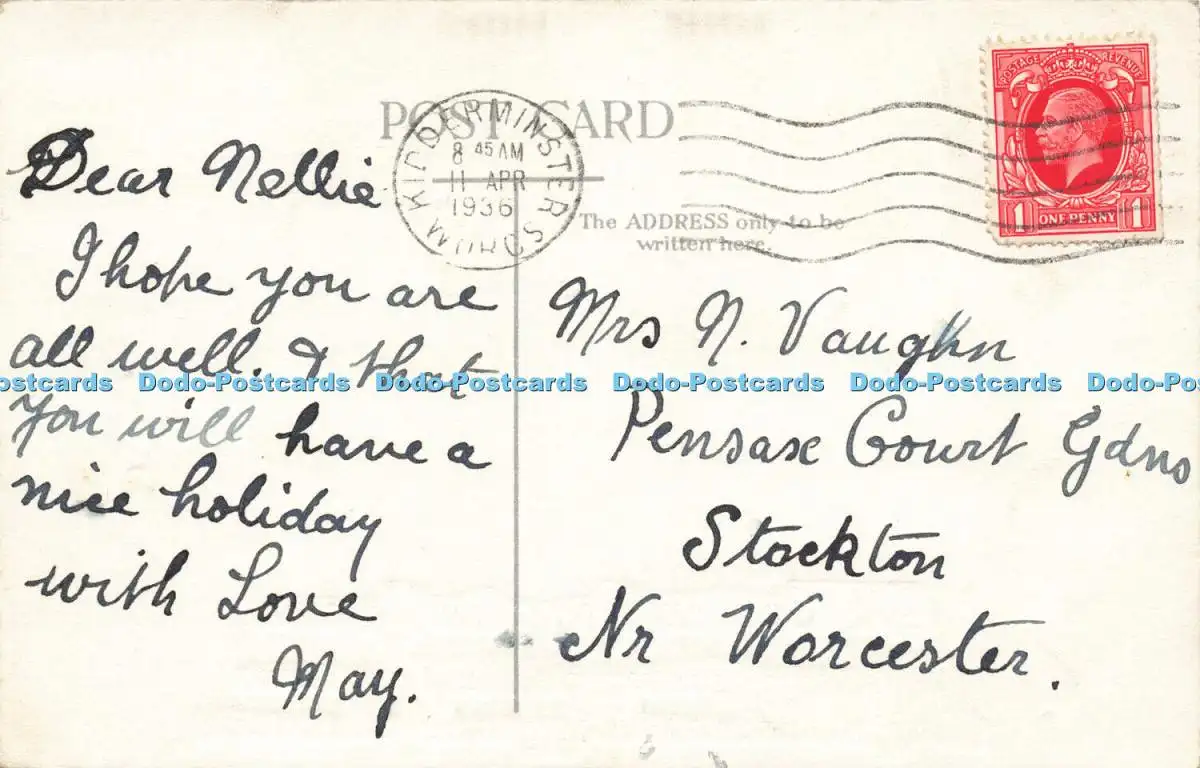 POST CARD
KIDDERMINSTER
8 45 AM
11 APR
1936
WORCS
POSTAGE REVENUE
1 ONE PENNY 1
The ADDRESS only to be
written here.
Dear Nellie
I hope you are
all well. & that
you will have a
nice holiday
with Love
May.
Mrs N. Vaughn
Pensax Court Gdns
Stockton
Nr Worcester.
ostcards Dodo-Postcards Dodo-Postcards Dodo-Postcards Dodo-Postcards Dodo-Po